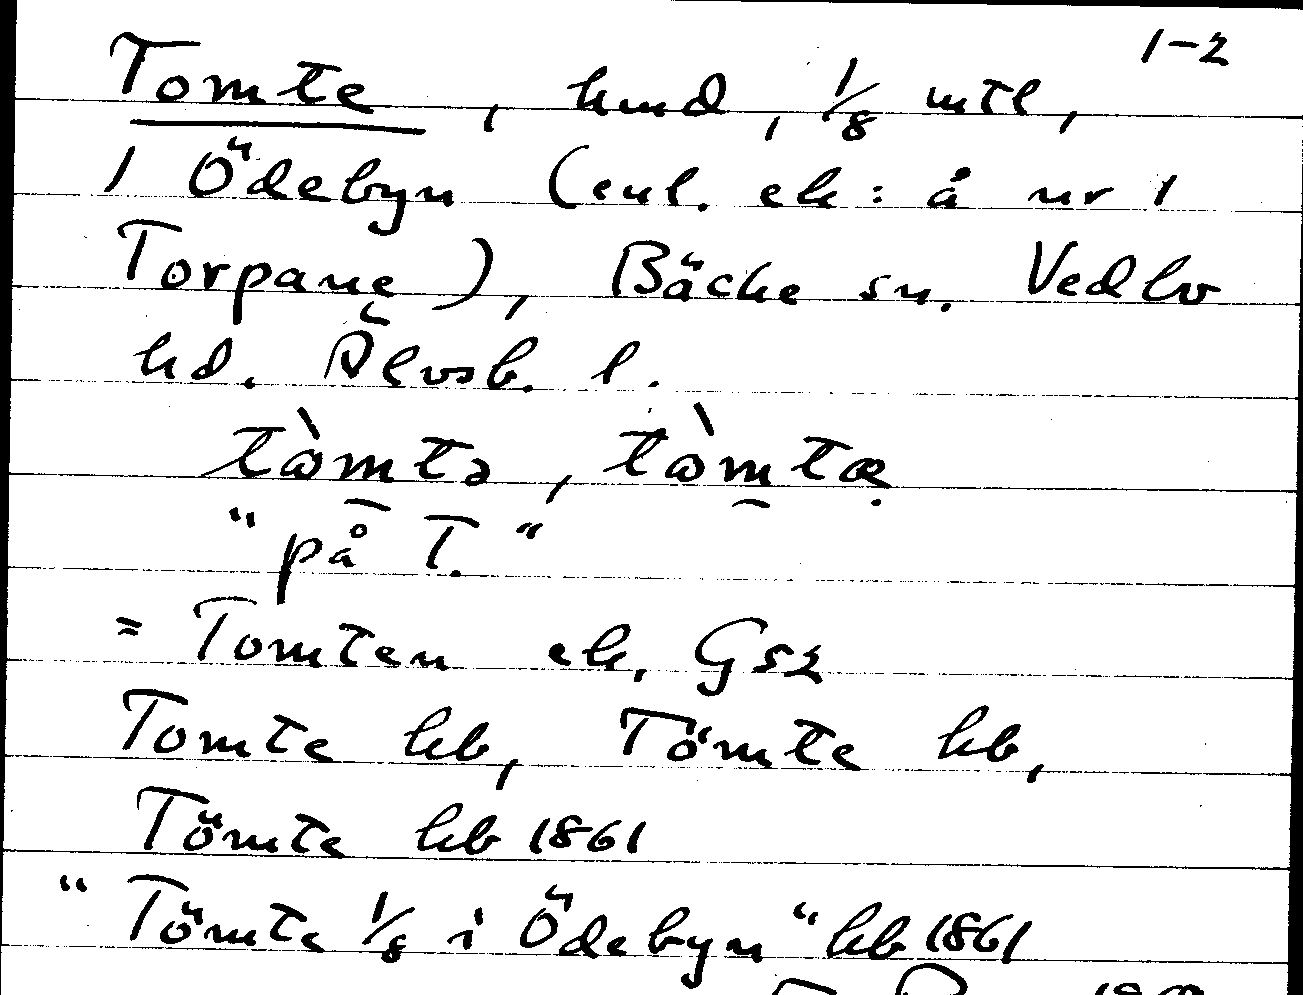 1-2
Tomte, hmd, 1/8 mtl,
1 Ödebyn (enl. ek: å nr 1
Torpane), Bäcke sn. Vedbo
hd. Älvsb. l.
tòmtə, tòmtæ
"på T."
= Tomten ek, GSK
Tomte kb, Tömte kb,
Tömte kb 1861
"Tömte 1/8 i Ödebyn" kb 1861